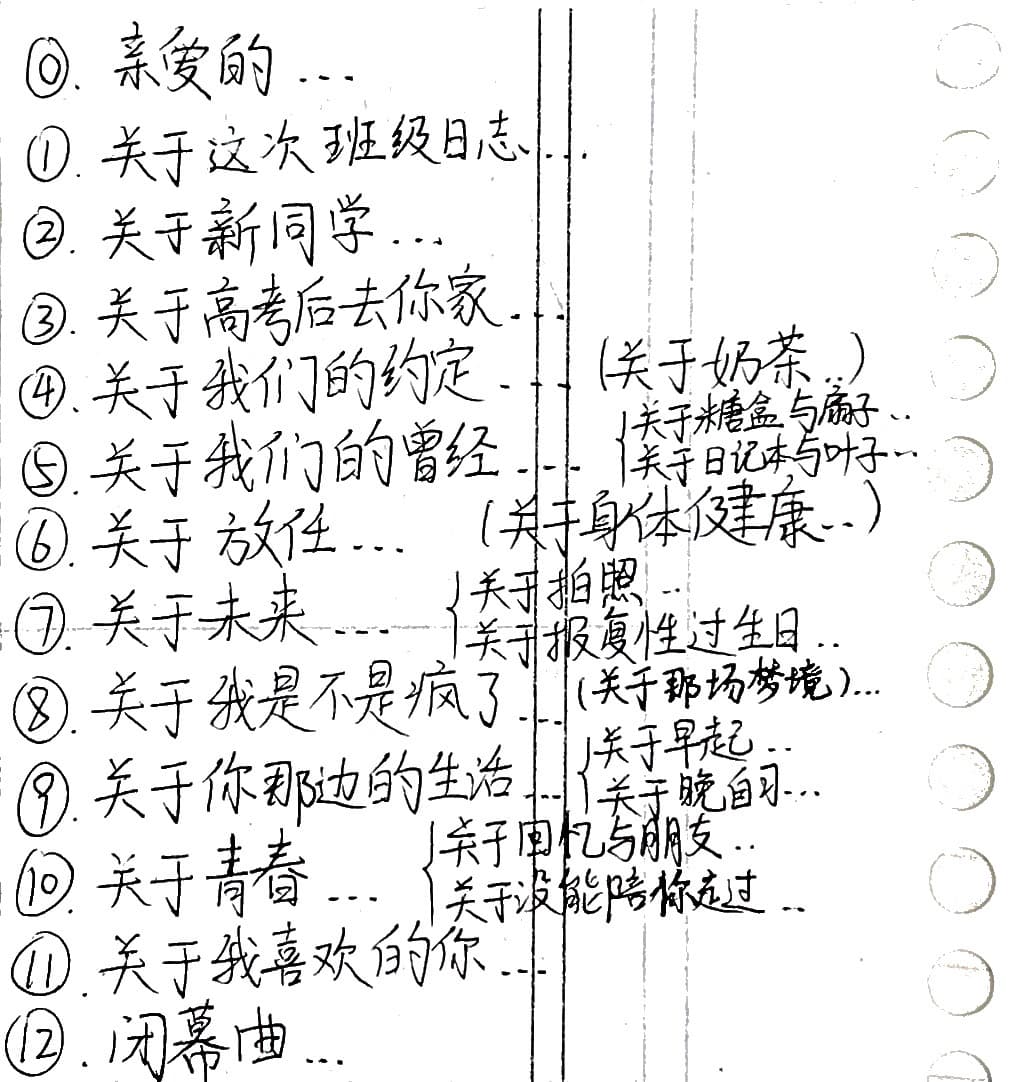 ⓪. 亲爱的...
①. 关于这次班级日志...
②. 关于新同学...
③. 关于高考后去你家...
④. 关于我们的约定... (关于奶茶..)
⑤. 关于我们的曾经...
关于糖盒与扇子..
关于日记本与叶子..
⑥. 关于放任... (关于身体健康..)
⑦. 关于未来...
关于拍照..
关于报复性过生日..
⑧. 关于我是不是疯了... (关于那场梦境)...
⑨. 关于你那边的生活...
关于早起..
关于晚自习...
⑩. 关于青春...
关于回忆与朋友..
关于没能陪你走过..
⑪. 关于我喜欢的你...
⑫. 闭幕曲...